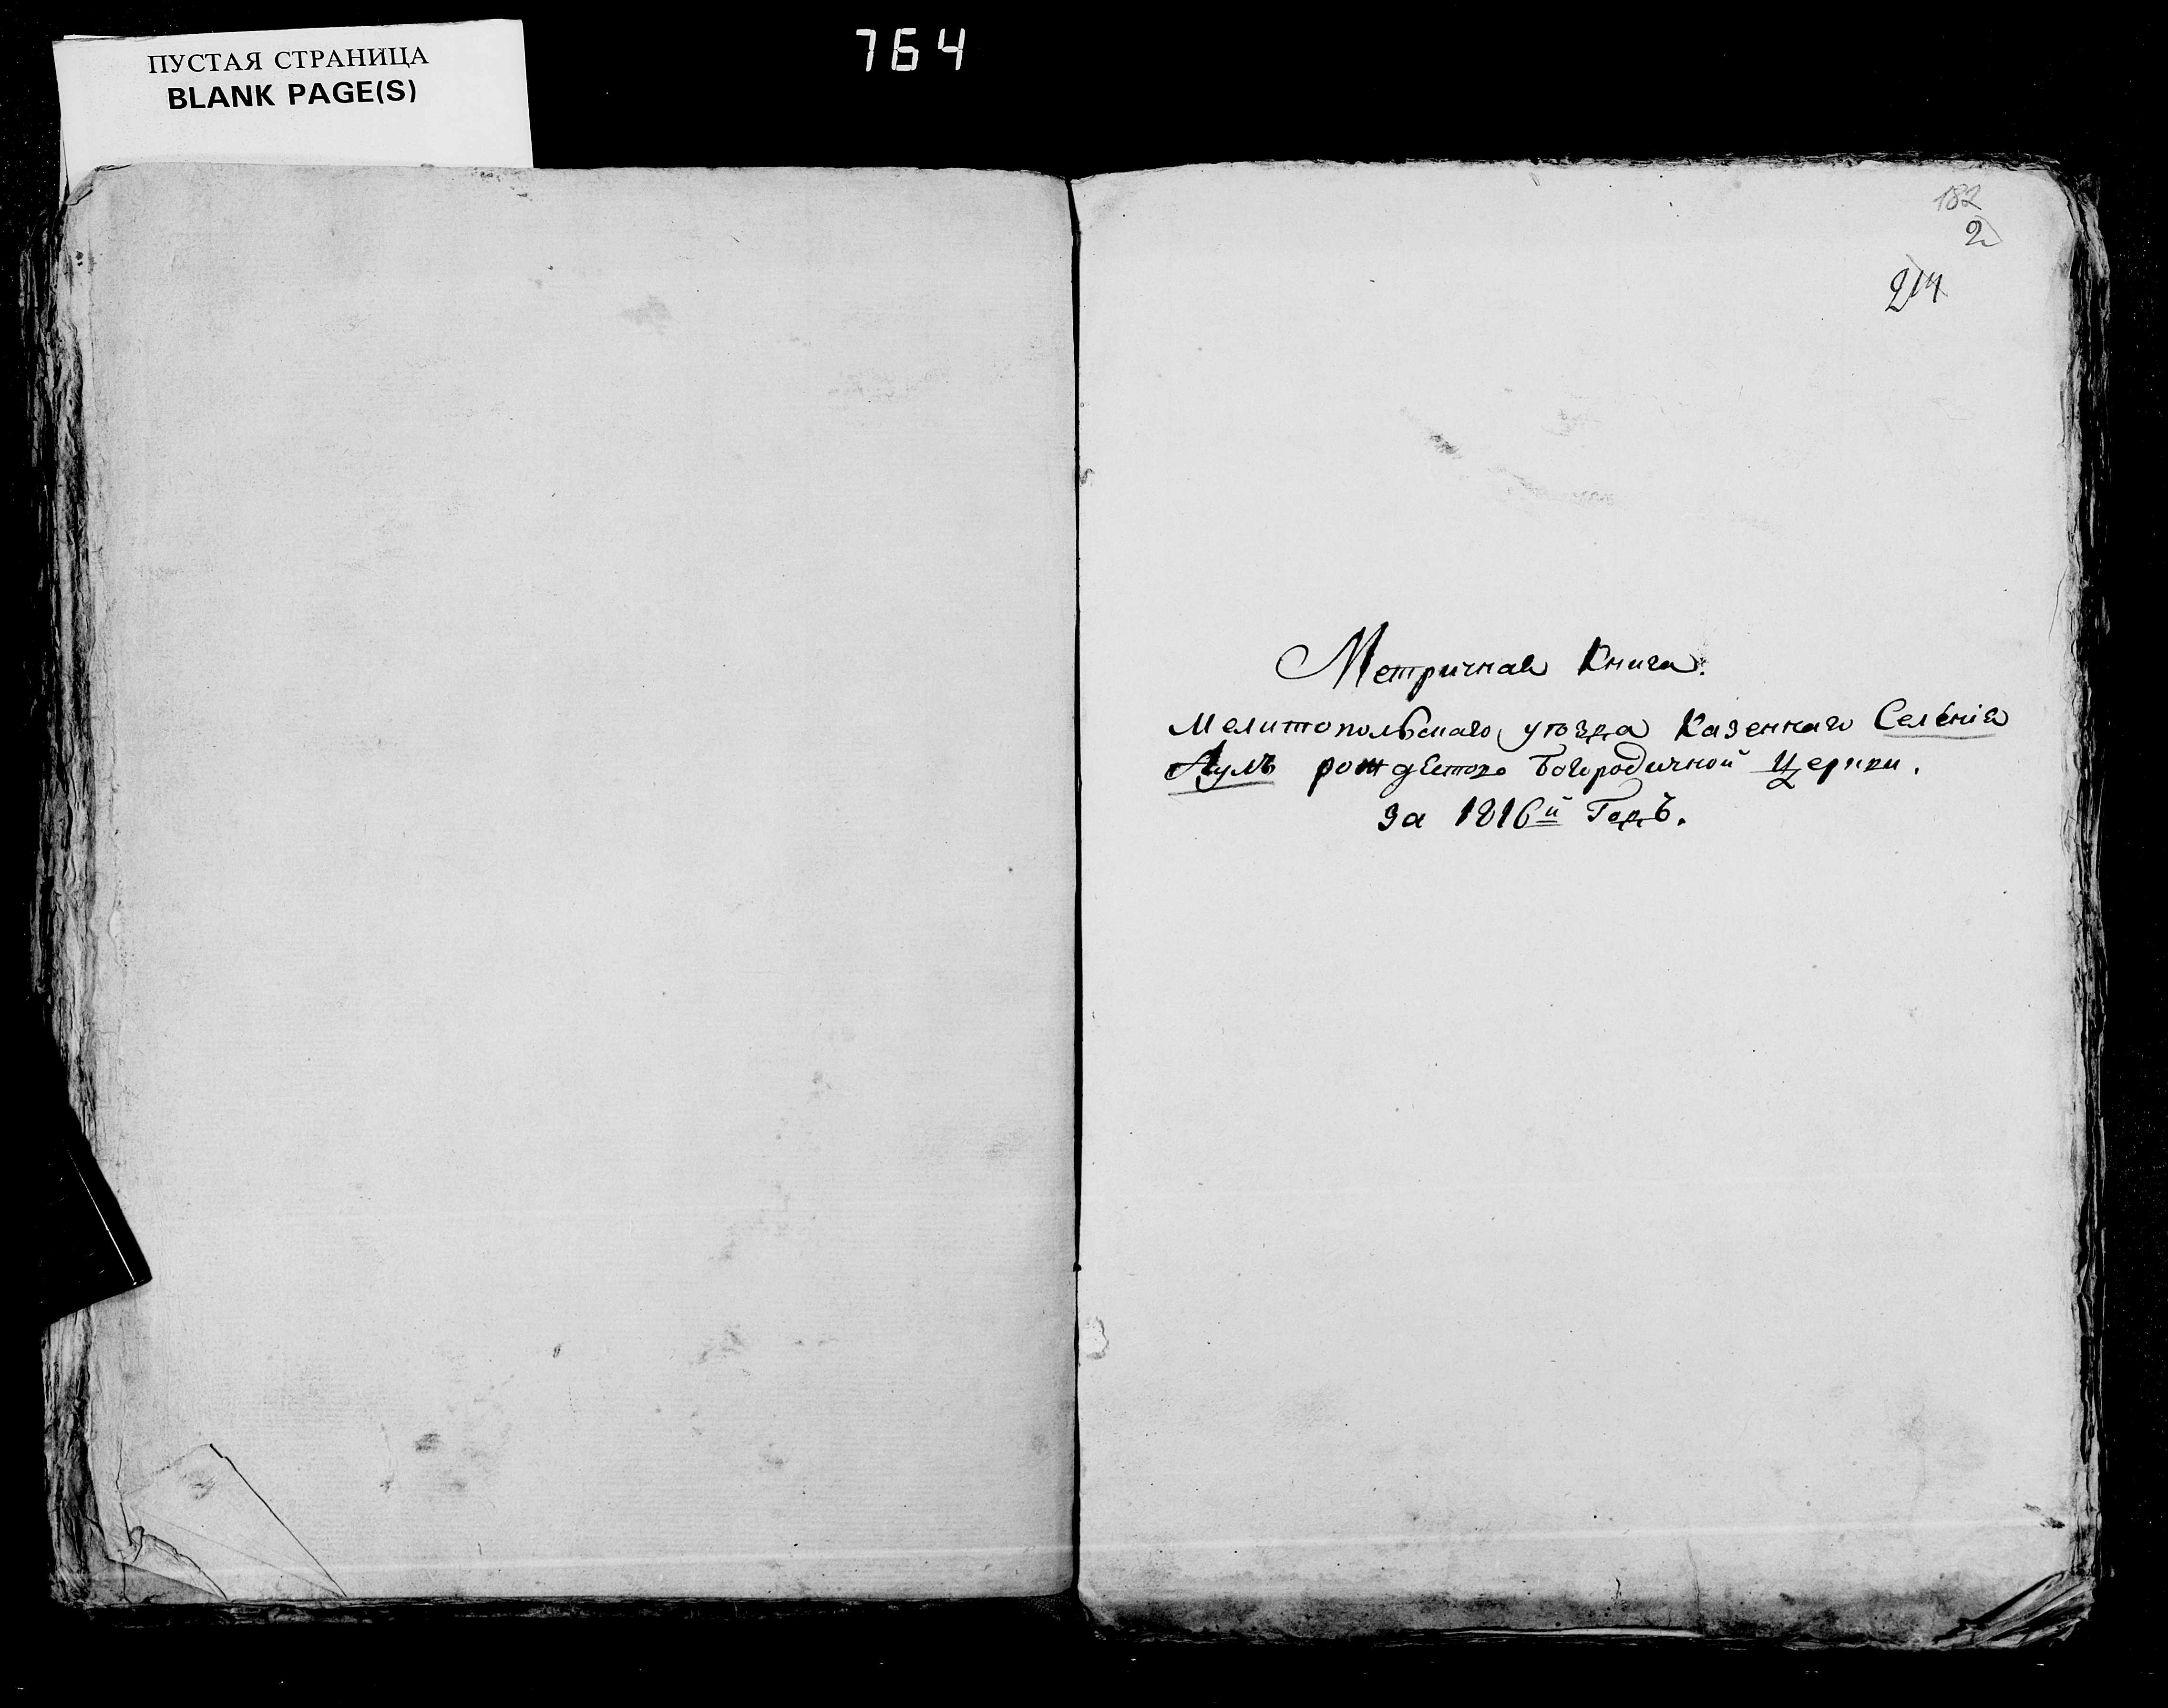 ПУСТАЯ СТРАНИЦА
BLANK PAGE(S)
764
182
2
214
Метричная Книга.
Мелитопольскаго уѣзда Казеннаго Селенія
Аулъ рождество Богородичной Церкви.
за 1816й Годъ.